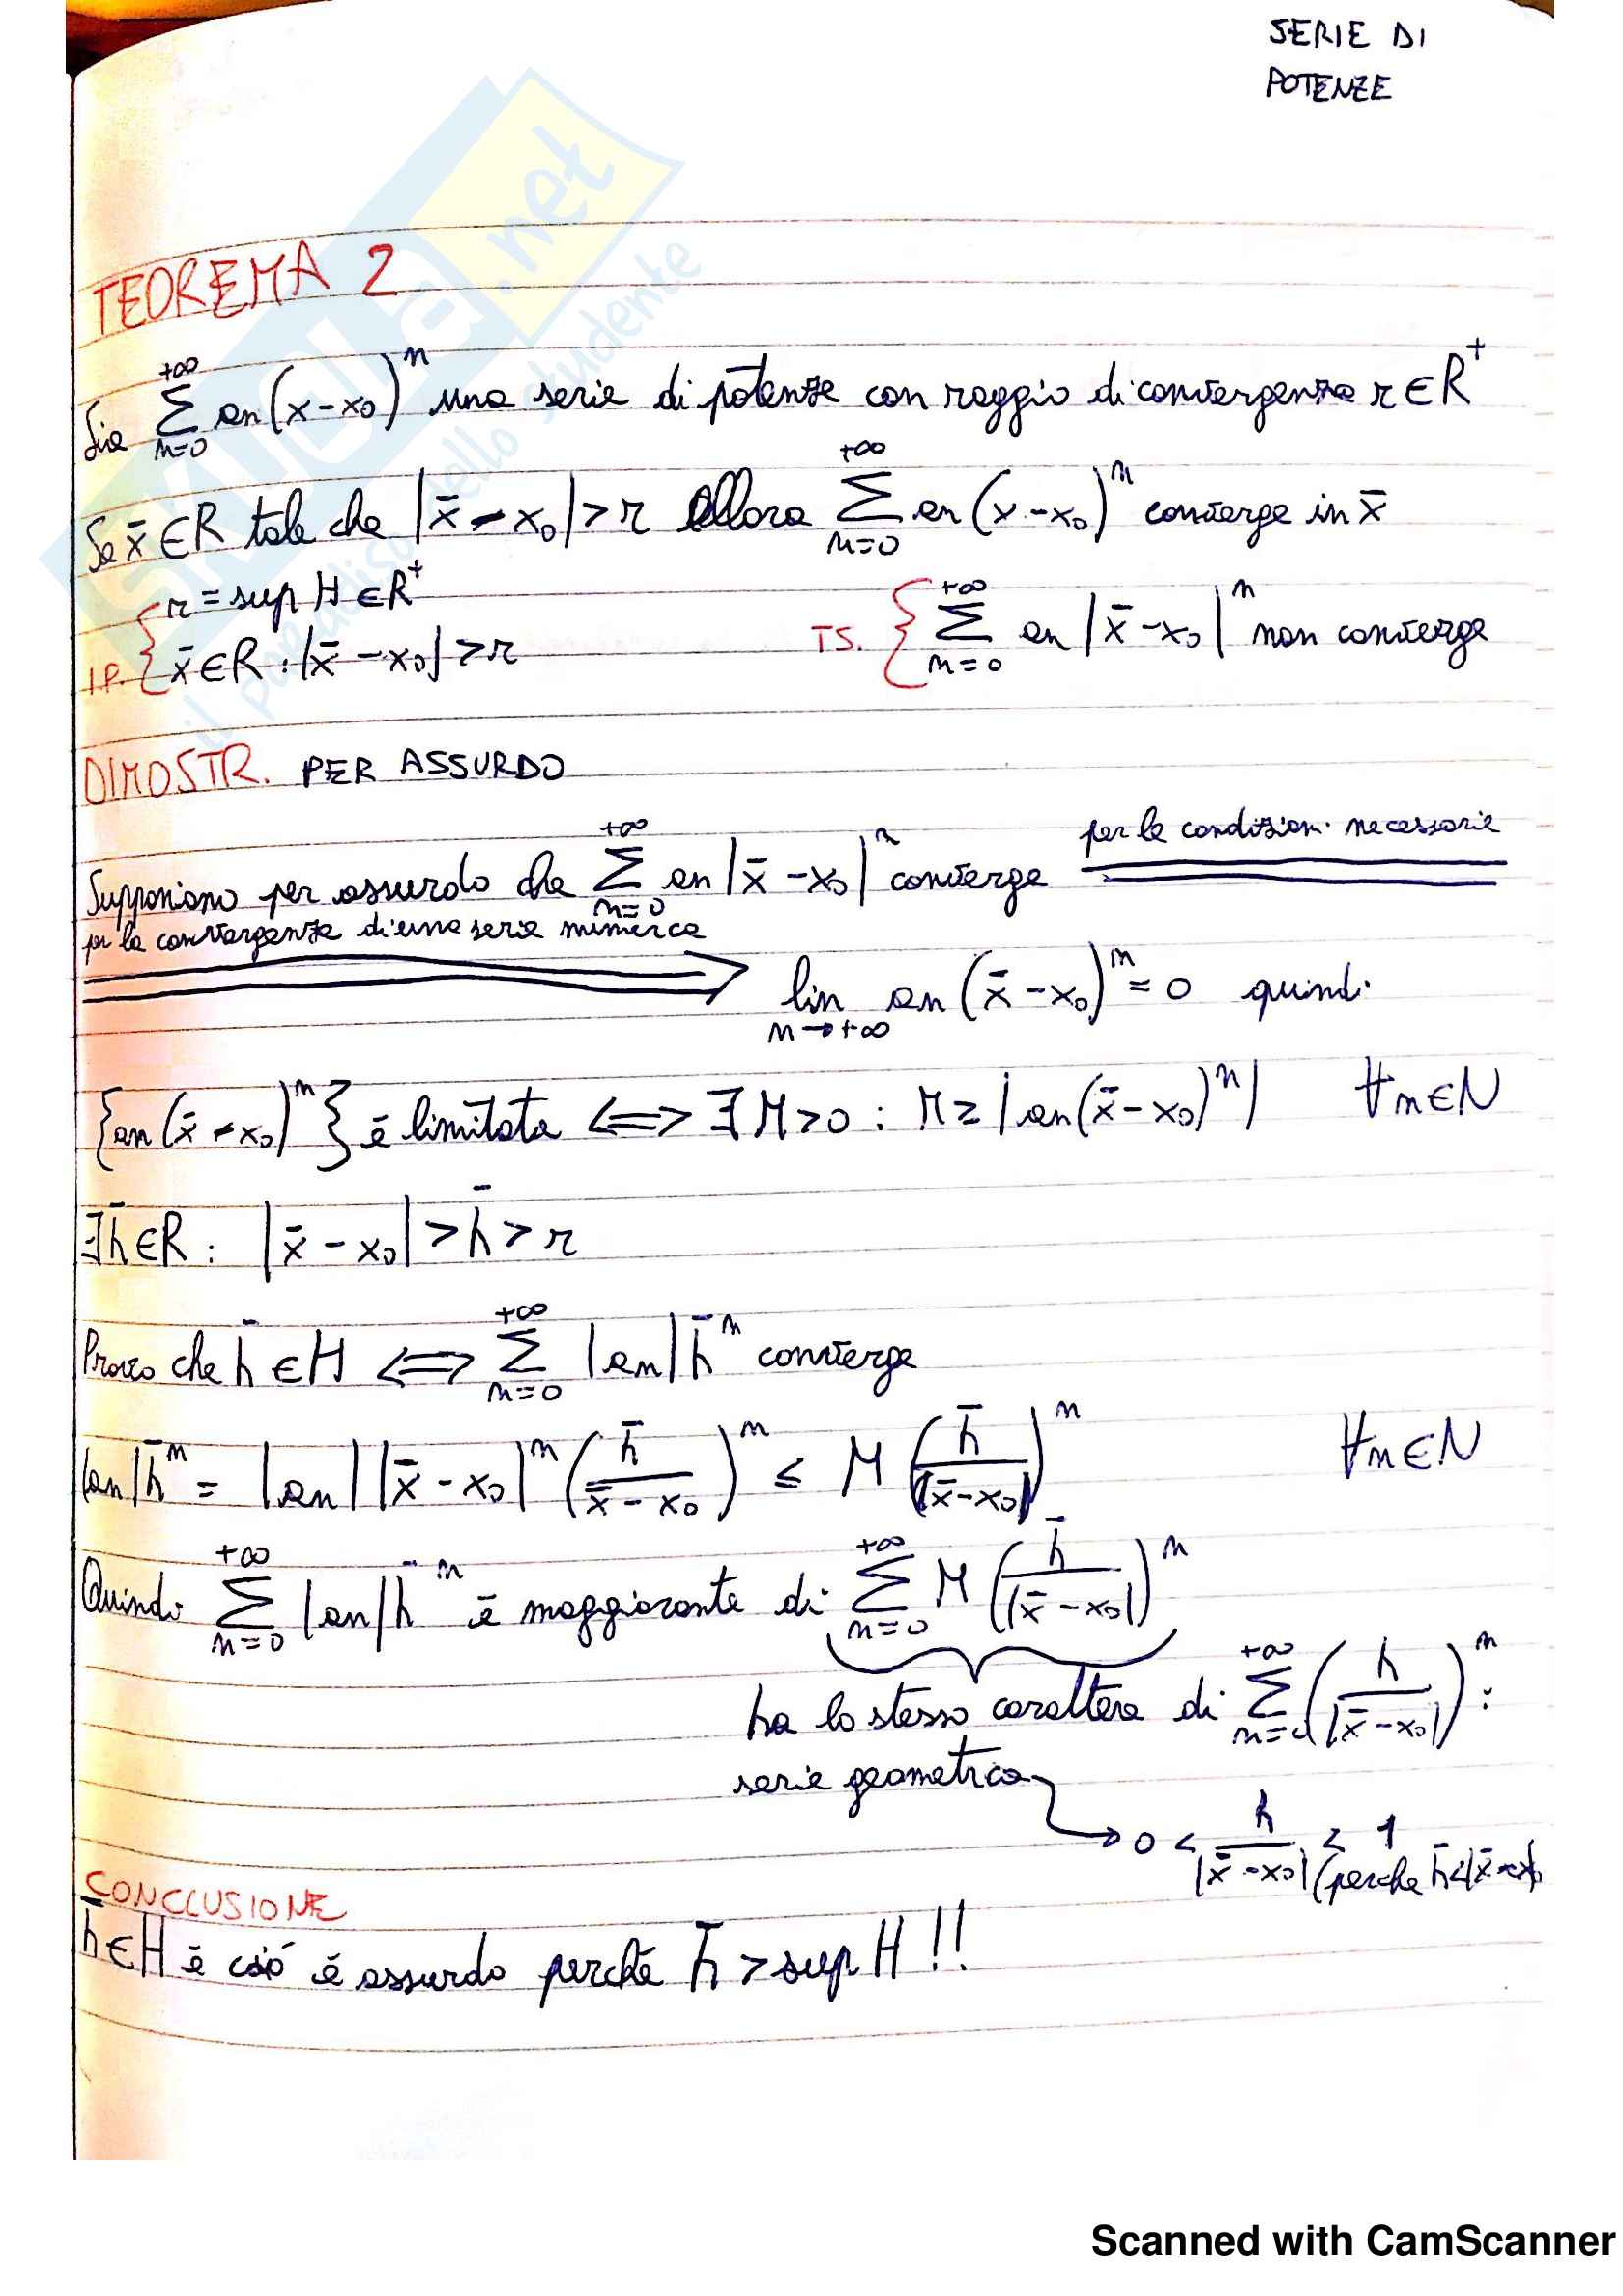 SERIE DI
POTENZE
TEOREMA 2
Sia $\sum_{n=0}^{+\infty} a_n (x-x_0)^n$ una serie di potenze con raggio di convergenza $r \in R^+$
Se $\bar{x} \in R$ tale che $|\bar{x} - x_0| > r$ allora $\sum_{n=0}^{+\infty} a_n (x-x_0)^n$ converge in $\bar{x}$
IP. { $r = \sup H \in R^+$
$\bar{x} \in R : |\bar{x} - x_0| > r$
TS. { $\sum_{n=0}^{+\infty} a_n |\bar{x} - x_0|^n$ non converge
DIMOSTR. PER ASSURDO
Supponiamo per assurdo che $\sum_{n=0}^{+\infty} a_n |\bar{x} - x_0|^n$ converge per le condizioni necessarie
per la convergenza di una serie numerica
⟹ $\lim_{n \to +\infty} a_n (\bar{x} - x_0)^n = 0$ quindi
$\{a_n (\bar{x} - x_0)^n\}$ è limitata ⟺ $\exists M > 0 : M \geq |a_n (\bar{x} - x_0)^n| \quad \forall n \in N$
$\exists \bar{h} \in R : |\bar{x} - x_0| > \bar{h} > r$
Provo che $\bar{h} \in H$ ⟺ $\sum_{n=0}^{+\infty} |a_n| \bar{h}^n$ converge
$|a_n| \bar{h}^n = |a_n| |\bar{x} - x_0|^n \left(\frac{\bar{h}}{\bar{x} - x_0}\right)^n \leq M \left(\frac{\bar{h}}{|\bar{x} - x_0|}\right)^n \quad \forall n \in N$
Quindi $\sum_{n=0}^{+\infty} |a_n| \bar{h}^n$ è maggiorante di $\sum_{n=0}^{+\infty} M \left(\frac{\bar{h}}{|\bar{x} - x_0|}\right)^n$
ha lo stesso carattere di $\sum_{n=0}^{+\infty} \left(\frac{h}{|\bar{x} - x_0|}\right)^n$ :
serie geometrica
→ $0 < \frac{h}{|\bar{x} - x_0|} < 1$
(perche $\bar{h} < |\bar{x} - x_0|$
CONCLUSIONE
$\bar{h} \in H$ è ciò è assurdo perché $\bar{h} > \sup H$ !!
SKUOLA.net
il paradiso dello studente
Scanned with CamScanner